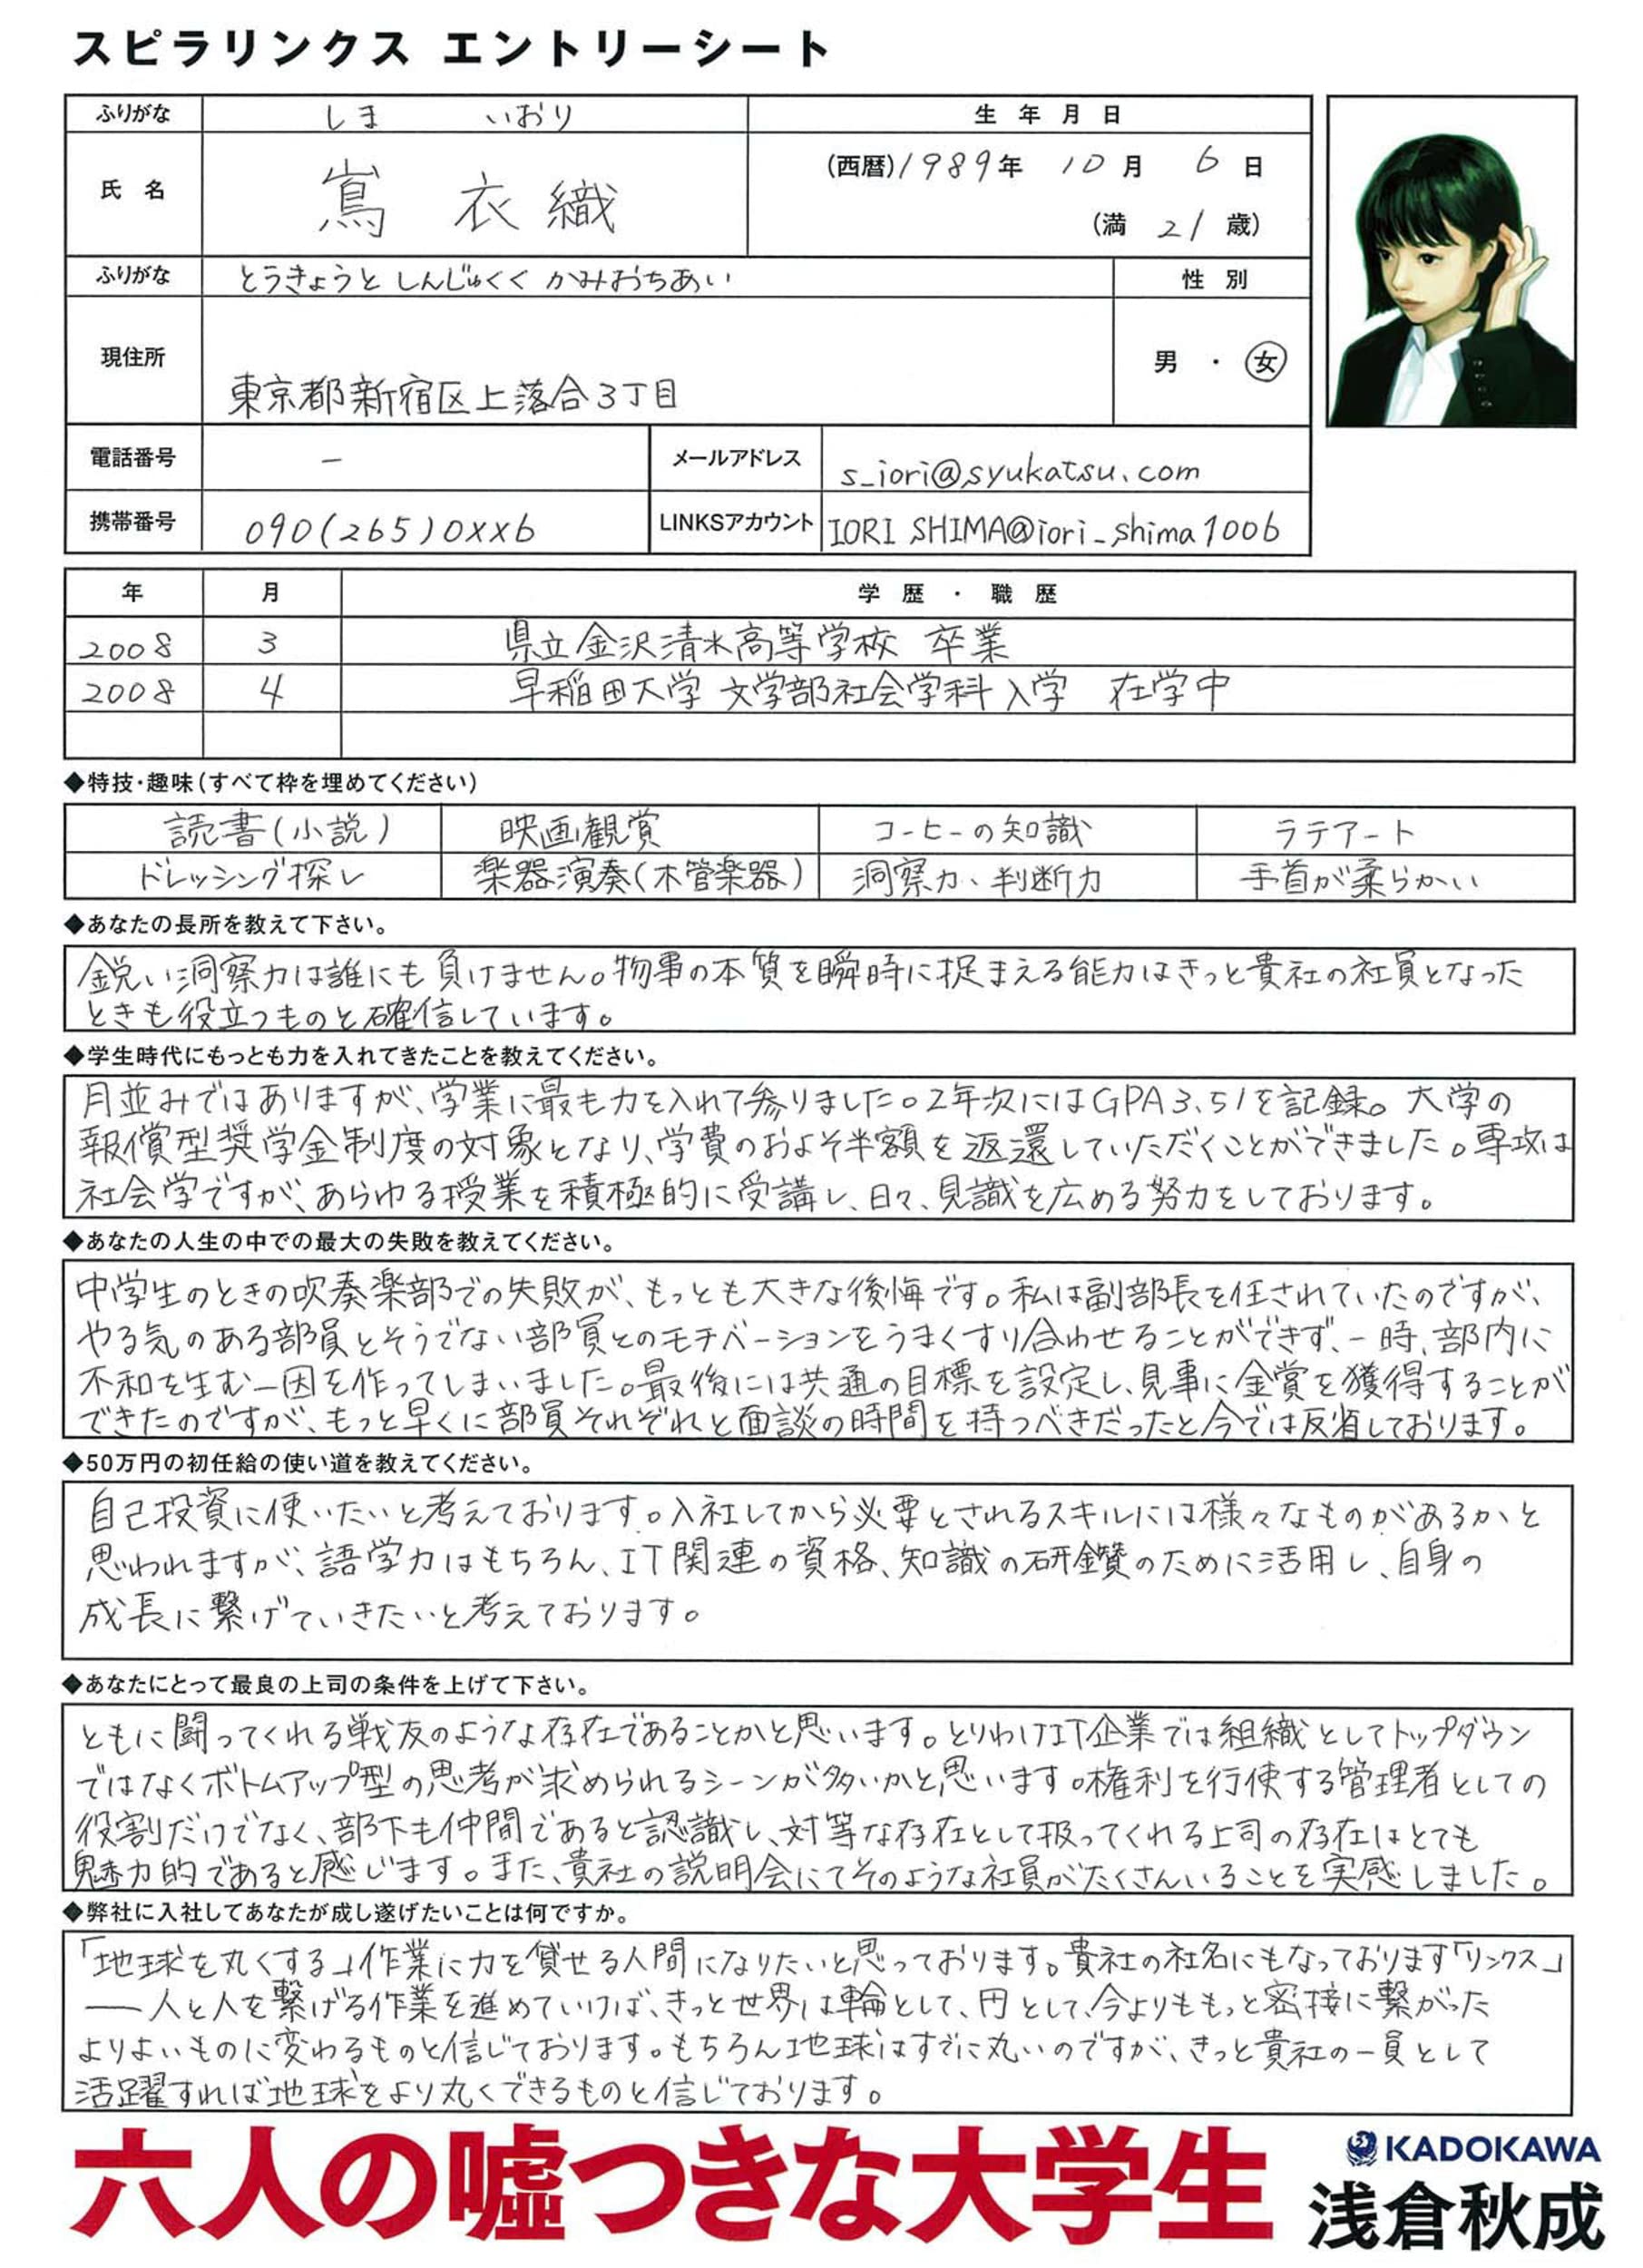 スピラリンクス エントリーシート
ふりがな しま いおり 生年月日
氏名 嶌 衣織 (西暦)1989年 10月 6日
(満 21 歳)
ふりがな とうきょうと しんじゅくく かみおちあい 性別
現住所 東京都新宿区上落合3丁目 男・女
電話番号 ー メールアドレス s_iori@syukatsu.com
携帯番号 090(265)0xx6 LINKSアカウント IORI SHIMA@iori_shima1006
年 月 学歴・職歴
2008 3 県立金沢清水高等学校 卒業
2008 4 早稲田大学 文学部社会学科入学 在学中
◆特技・趣味(すべて枠を埋めてください)
読書(小説) 映画観賞 コーヒーの知識 ラテアート
ドレッシング探し 楽器演奏(木管楽器) 洞察力、判断力 手首が柔らかい
◆あなたの長所を教えて下さい。
鋭い洞察力は誰にも負けません。物事の本質を瞬時に捉まえる能力はきっと貴社の社員となった
ときも役立つものと確信しています。
◆学生時代にもっとも力を入れてきたことを教えてください。
月並みではありますが、学業に最も力を入れて参りました。2年次にはGPA3.51を記録。大学の
報償型奨学金制度の対象となり、学費のおよそ半額を返還していただくことができました。専攻は
社会学ですが、あらゆる授業を積極的に受講し、日々、見識を広める努力をしております。
◆あなたの人生の中での最大の失敗を教えてください。
中学生のときの吹奏楽部での失敗が、もっとも大きな後悔です。私は副部長を任されていたのですが、
やる気のある部員とそうでない部員とのモチベーションをうまくすり合わせることができず、一時、部内に
不和を生む一因を作ってしまいました。最後には共通の目標を設定し、見事に金賞を獲得することが
できたのですが、もっと早くに部員それぞれと面談の時間を持つべきだったと今では反省しております。
◆50万円の初任給の使い道を教えてください。
自己投資に使いたいと考えております。入社してから必要とされるスキルには様々なものがあるかと
思われますが、語学力はもちろん、IT関連の資格、知識の研鑽のために活用し、自身の
成長に繋げていきたいと考えております。
◆あなたにとって最良の上司の条件を上げて下さい。
ともに闘ってくれる戦友のような存在であることかと思います。とりわけIT企業では組織としてトップダウン
ではなくボトムアップ型の思考が求められるシーンが多いかと思います。権利を行使する管理者としての
役割だけでなく、部下も仲間であると認識し、対等な存在として扱ってくれる上司の存在はとても
魅力的であると感じます。また、貴社の説明会にてそのような社員がたくさんいることを実感しました。
◆弊社に入社してあなたが成し遂げたいことは何ですか。
「地球を丸くする」作業に力を貸せる人間になりたいと思っております。貴社の社名にもなっております「リンクス」
――人と人を繋げる作業を進めていけば、きっと世界は輪として、円として、今よりももっと密接に繋がった
よりよいものに変わるものと信じております。もちろん地球はすでに丸いのですが、きっと貴社の一員として
活躍すれば地球をより丸くできるものと信じております。
六人の嘘つきな大学生
KADOKAWA
浅倉秋成